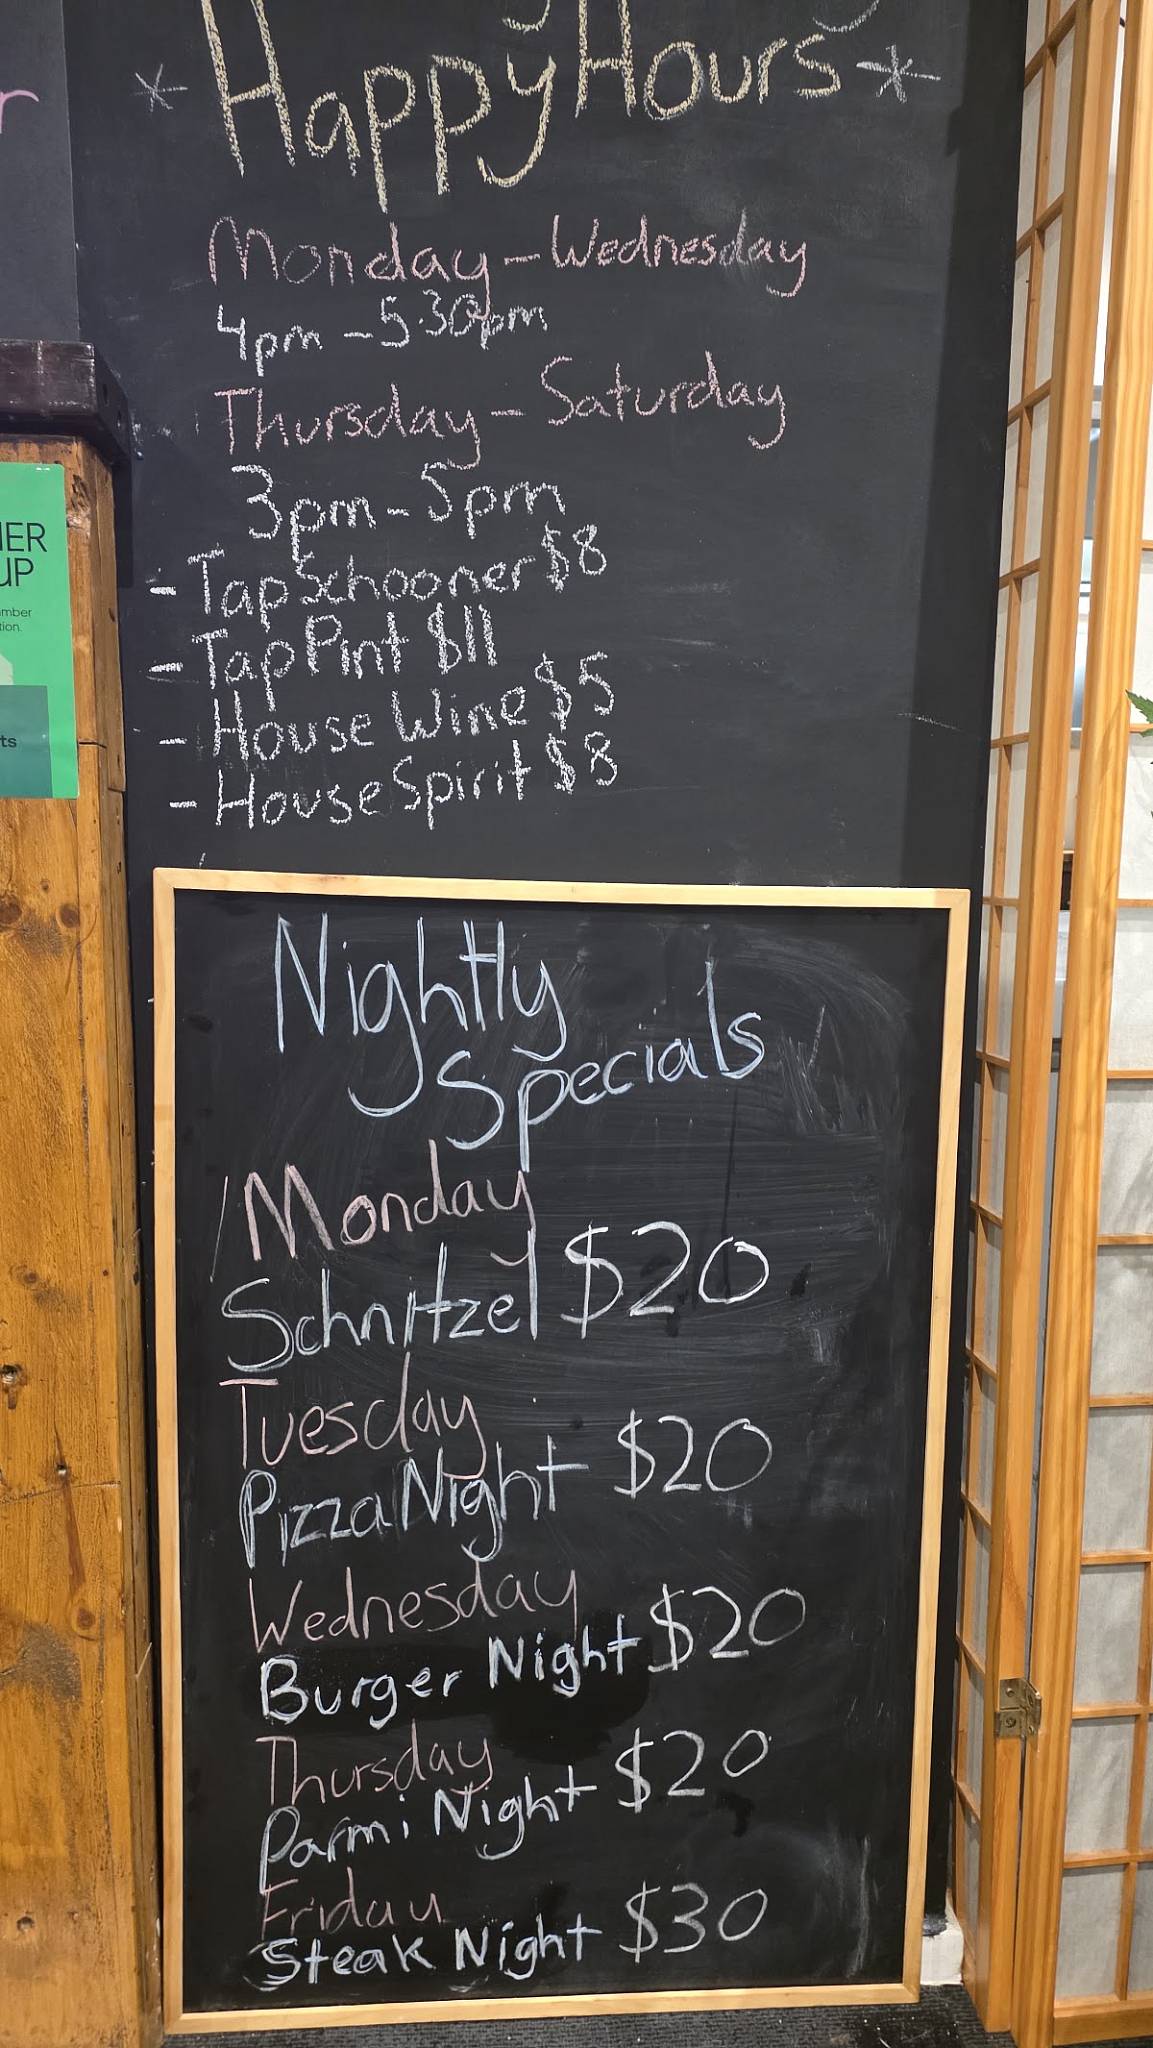 Happy Hours
Monday - Wednesday
4pm - 5.30pm
Thursday - Saturday
3pm - 5pm
- Tap Schooner $8
- Tap Pint $11
- House Wine $5
- House Spirit $8
Nightly
Specials
Monday
Schnitzel $20
Tuesday
Pizza Night $20
Wednesday
Burger Night $20
Thursday
Parmi Night $20
Friday
Steak Night $30